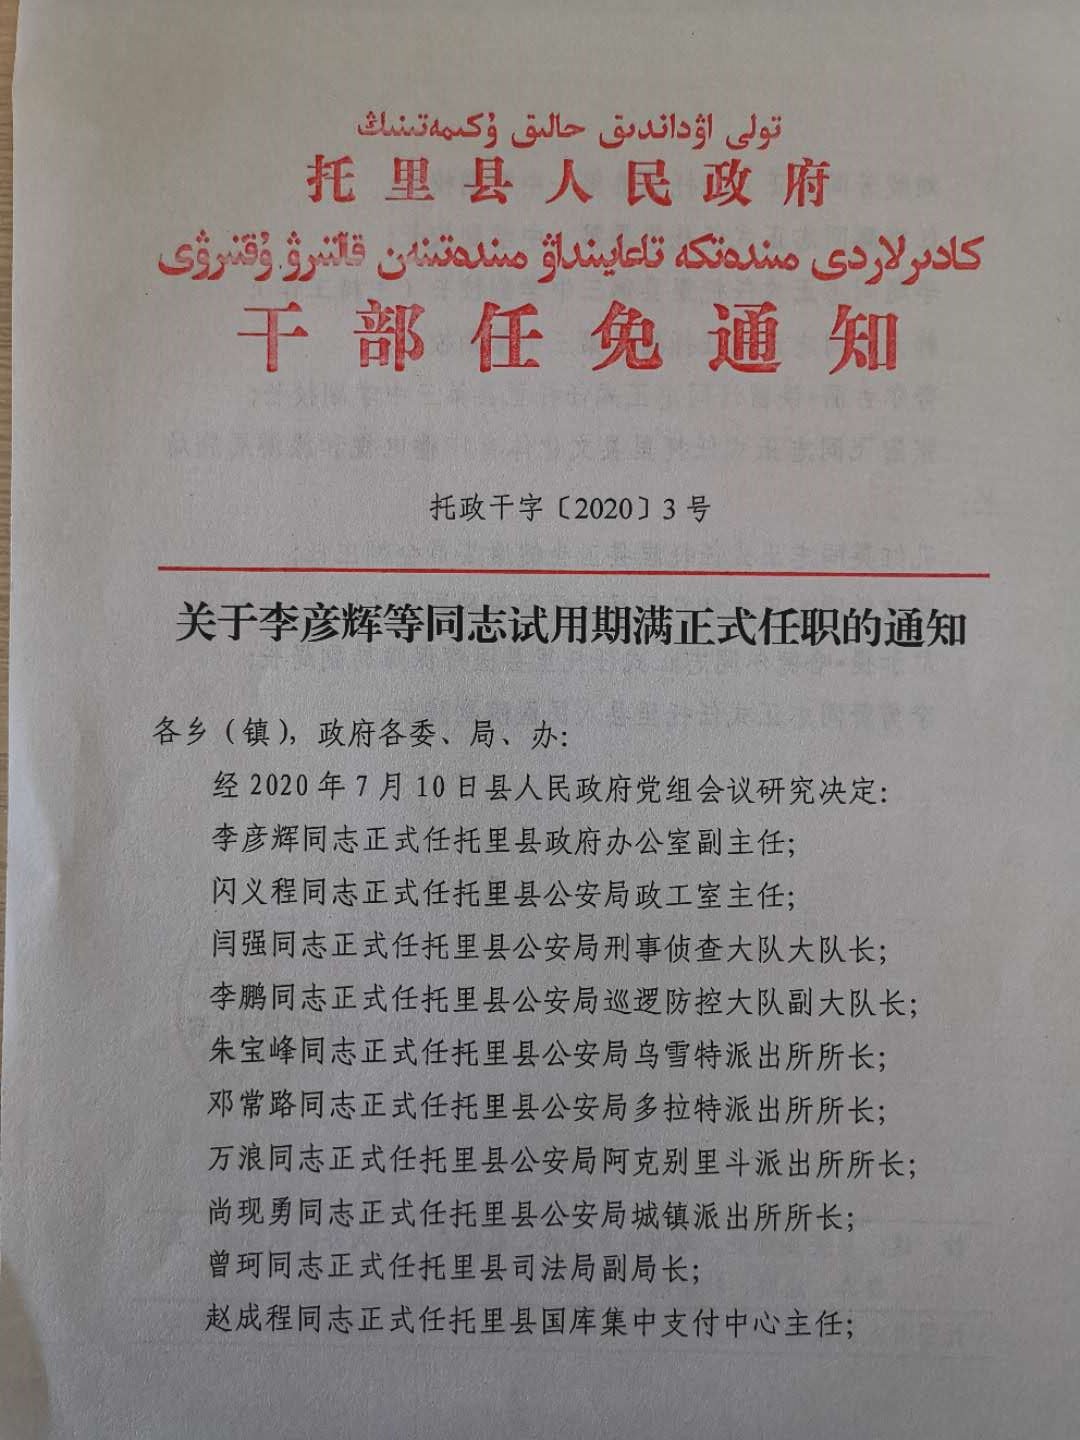 تولى اۋداندىق حالىق ۇكىمەتىنىڭ
托里县人民政府
كادىرلاردى مىندەتكە تاعايىنداۋ مىندەتىنەن قالتىرۋ ۇقتىرۋى
干部任免通知
托政干字〔2020〕3号
关于李彦辉等同志试用期满正式任职的通知
各乡（镇），政府各委、局、办：
经2020年7月10日县人民政府党组会议研究决定：
李彦辉同志正式任托里县政府办公室副主任；
闪义程同志正式任托里县公安局政工室主任；
闫强同志正式任托里县公安局刑事侦查大队大队长；
李鹏同志正式任托里县公安局巡逻防控大队副大队长；
朱宝峰同志正式任托里县公安局乌雪特派出所所长；
邓常路同志正式任托里县公安局多拉特派出所所长；
万浪同志正式任托里县公安局阿克别里斗派出所所长；
尚现勇同志正式任托里县公安局城镇派出所所长；
曾珂同志正式任托里县司法局副局长；
赵成程同志正式任托里县国库集中支付中心主任；